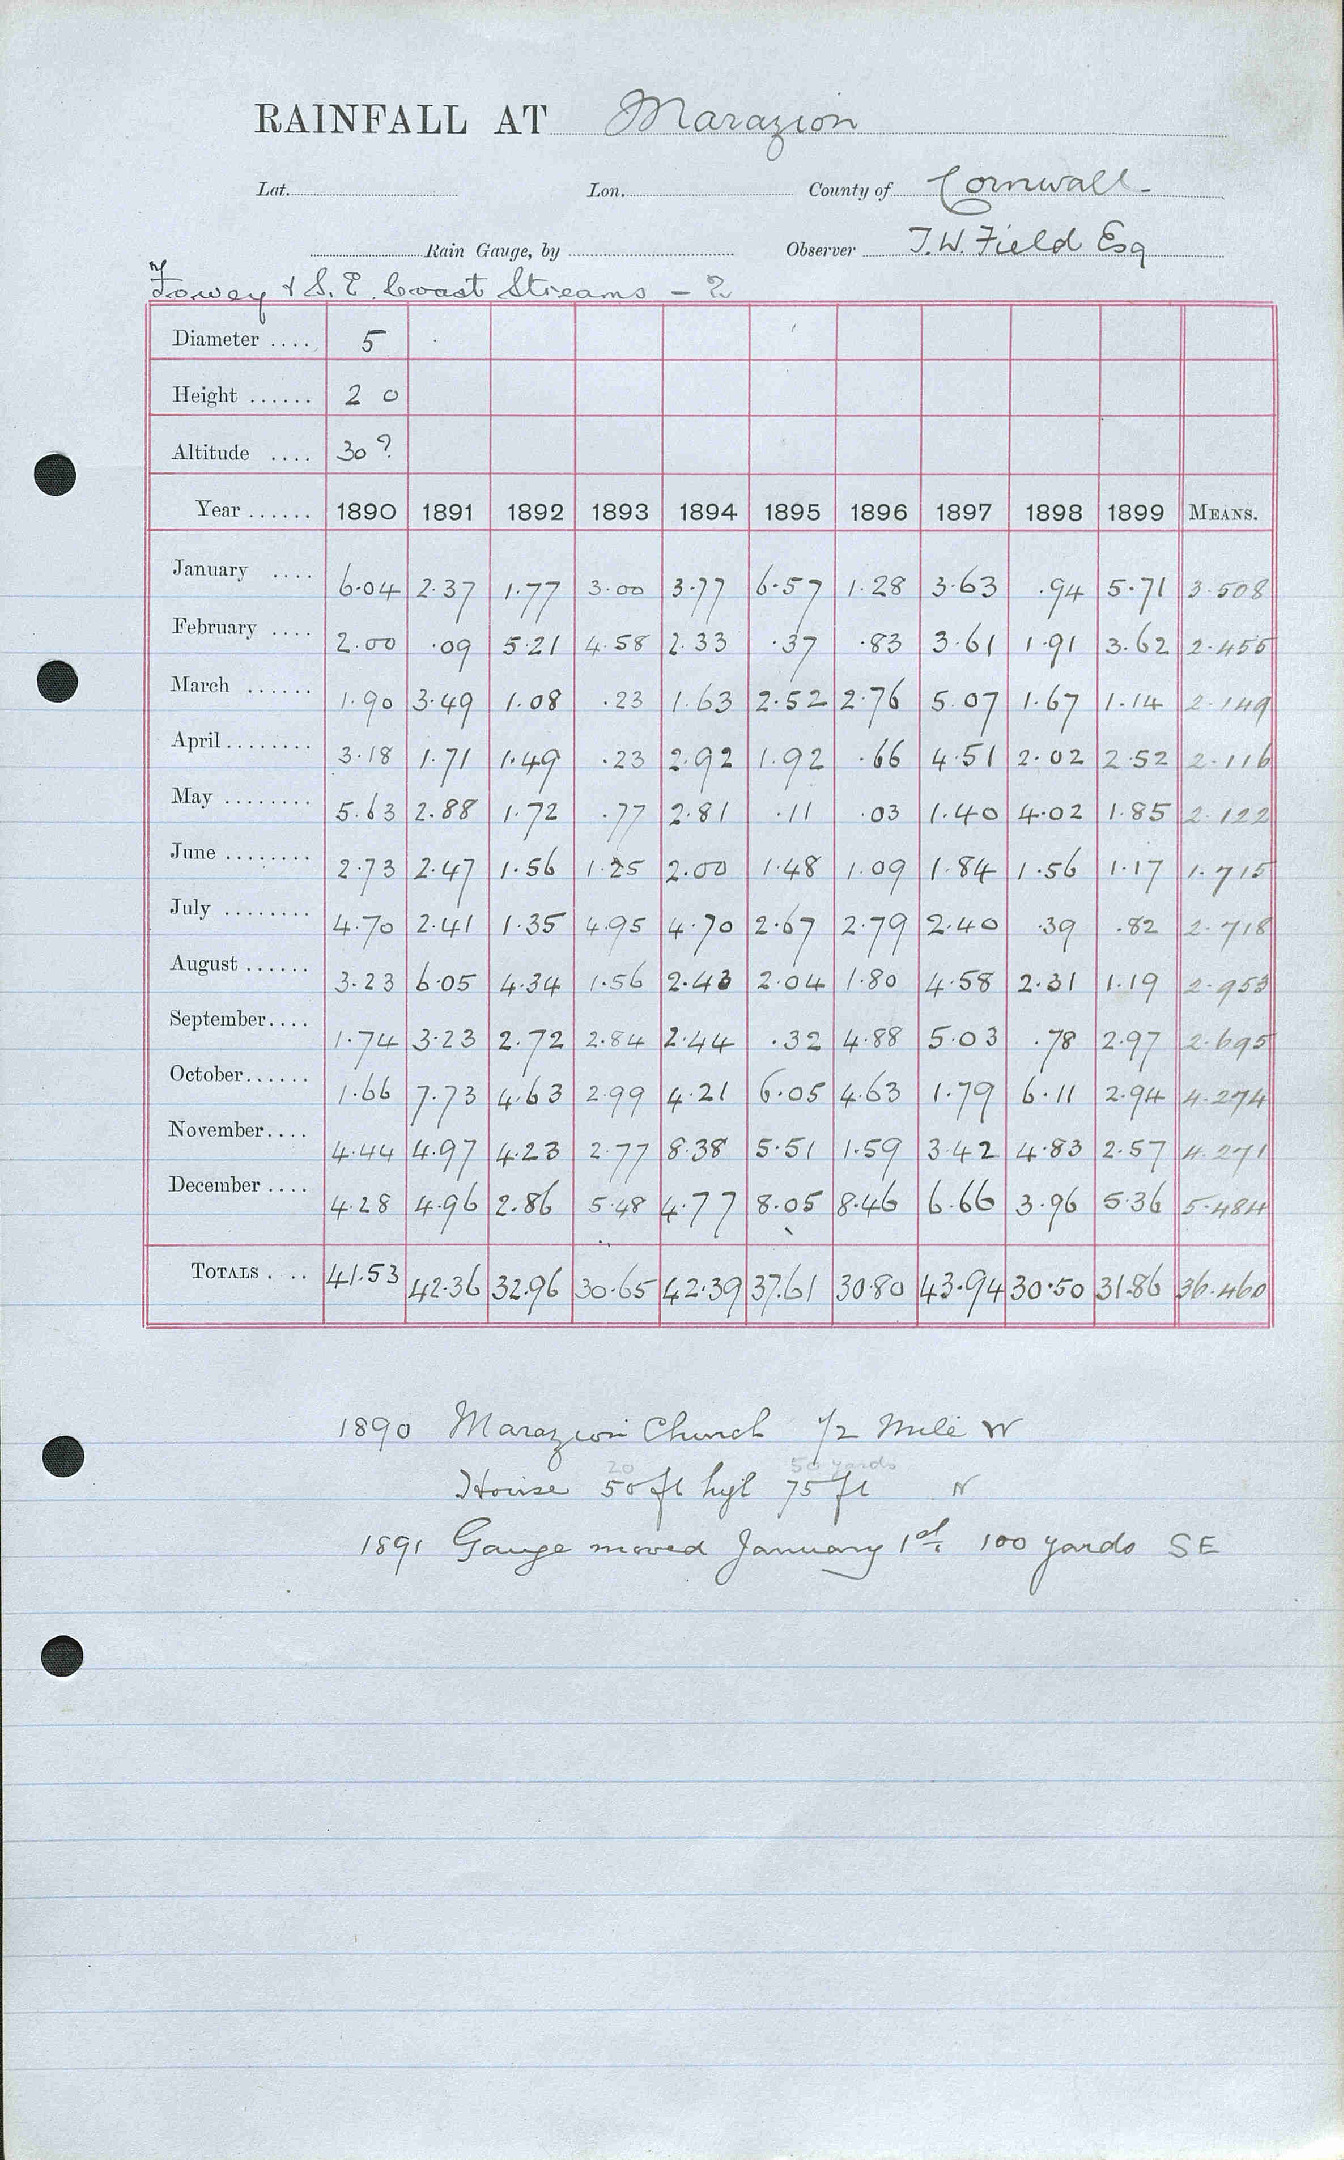 RAINFALL AT Marazion
Lat. Lon. County of Cornwall
Rain Gauge, by Observer T.W. Field Esq
Fowey & S.E. Coast Streams - 2
Diameter .... 5
Height ...... 2 0
Altitude .... 30?
Year ...... 1890 1891 1892 1893 1894 1895 1896 1897 1898 1899 MEANS.
January .... 6.04 2.37 1.77 3.00 3.77 6.57 1.28 3.63 .94 5.71 3.508
February .... 2.00 .09 5.21 4.58 2.33 .37 .83 3.61 1.91 3.62 2.455
March ...... 1.90 3.49 1.08 .23 1.63 2.52 2.76 5.07 1.67 1.14 2.149
April ........ 3.18 1.71 1.49 .23 2.92 1.92 .66 4.51 2.02 2.52 2.116
May ........ 5.63 2.88 1.72 .77 2.81 .11 .03 1.40 4.02 1.85 2.122
June ........ 2.73 2.47 1.56 1.25 2.00 1.48 1.09 1.84 1.56 1.17 1.715
July ........ 4.70 2.41 1.35 4.95 4.70 2.67 2.79 2.40 .39 .82 2.718
August ...... 3.23 6.05 4.34 1.56 2.43 2.04 1.80 4.58 2.31 1.19 2.953
September.... 1.74 3.23 2.72 2.84 2.44 .32 4.88 5.03 .78 2.97 2.695
October...... 1.66 7.73 4.63 2.99 4.21 6.05 4.63 1.79 6.11 2.94 4.274
November.... 4.44 4.97 4.23 2.77 8.38 5.51 1.59 3.42 4.83 2.57 4.271
December .... 4.28 4.96 2.86 5.48 4.77 8.05 8.46 6.66 3.96 5.36 5.484
TOTALS .... 41.53 42.36 32.96 30.65 42.39 37.61 30.80 43.94 30.50 31.86 36.460
1890 Marazion Church 1/2 Mile W
20 50 yards
House 50 ft high 75 ft N
1891 Gauge moved January 1st. 100 yards SE